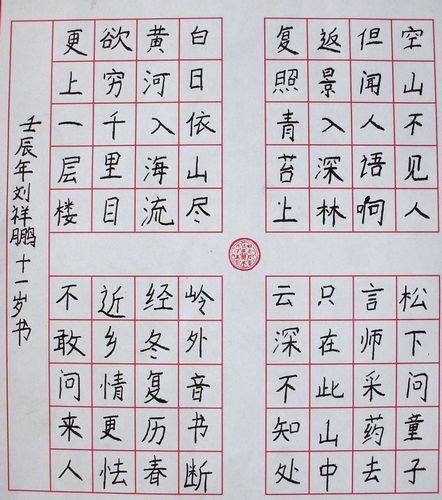 空山不见人
但闻人语响
返景入深林
复照青苔上
白日依山尽
黄河入海流
欲穷千里目
更上一层楼
松下问童子
言师采药去
只在此山中
云深不知处
岭外音书断
经冬复历春
近乡情更怯
不敢问来人
壬辰年刘祥鹏十一岁书